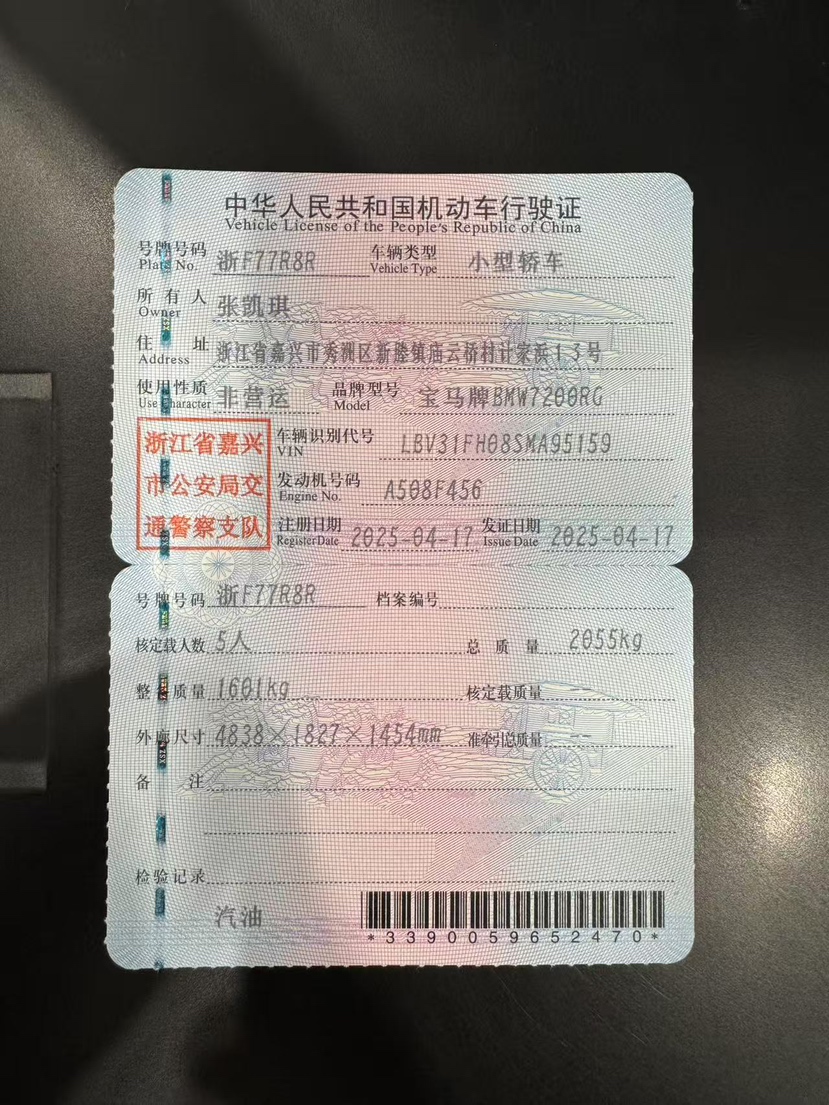 中华人民共和国机动车行驶证
Vehicle License of the People's Republic of China
号牌号码 浙F77R8R 车辆类型 小型轿车
Plate No. Vehicle Type
所有人 张凯琪
Owner
住址 浙江省嘉兴市秀洲区新塍镇庙云桥村计家浜13号
Address
使用性质 非营运 品牌型号 宝马牌BMW7200RG
Use Character Model
浙江省嘉兴
市公安局交
通警察支队
车辆识别代号 LBV31FH08SMA95159
VIN
发动机号码 A508F456
Engine No.
注册日期 2025-04-17 发证日期 2025-04-17
Register Date Issue Date
号牌号码 浙F77R8R 档案编号
核定载人数 5人 总质量 2055kg
整备质量 1601kg 核定载质量 --
外廓尺寸 4838×1827×1454mm 准牵引总质量 --
备注
检验记录
汽油
*3390059652470*